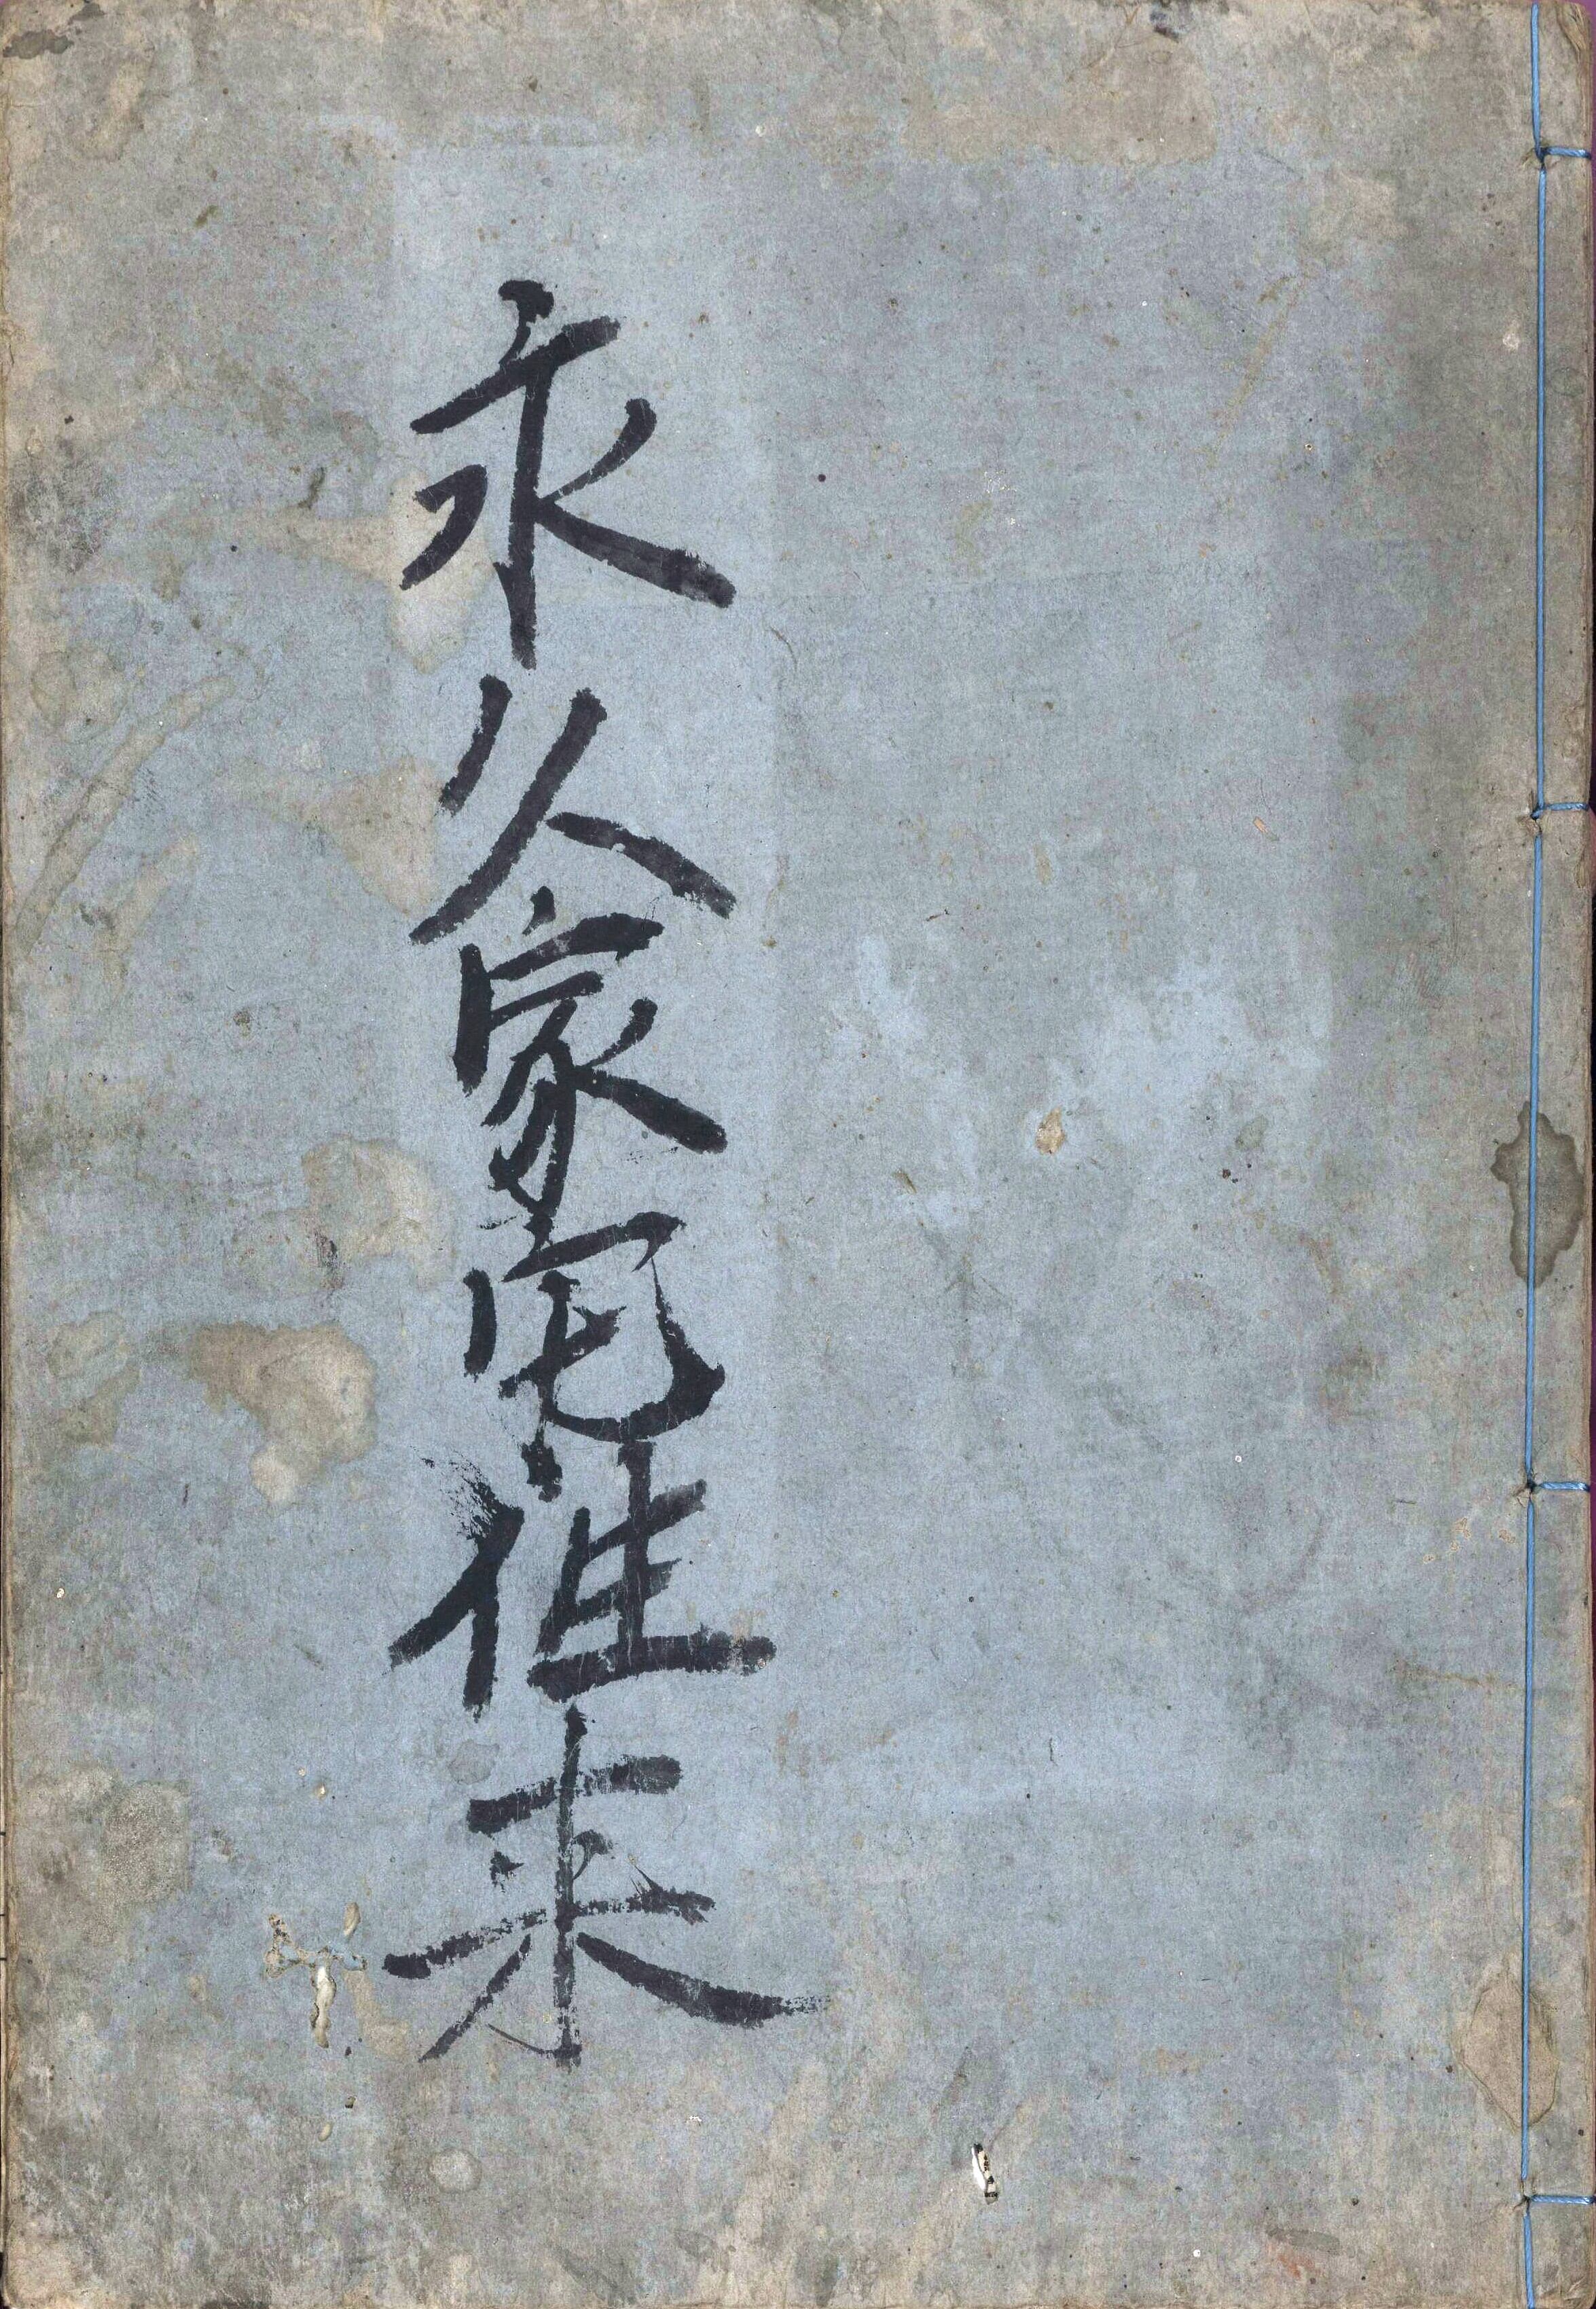 永久家宅往来